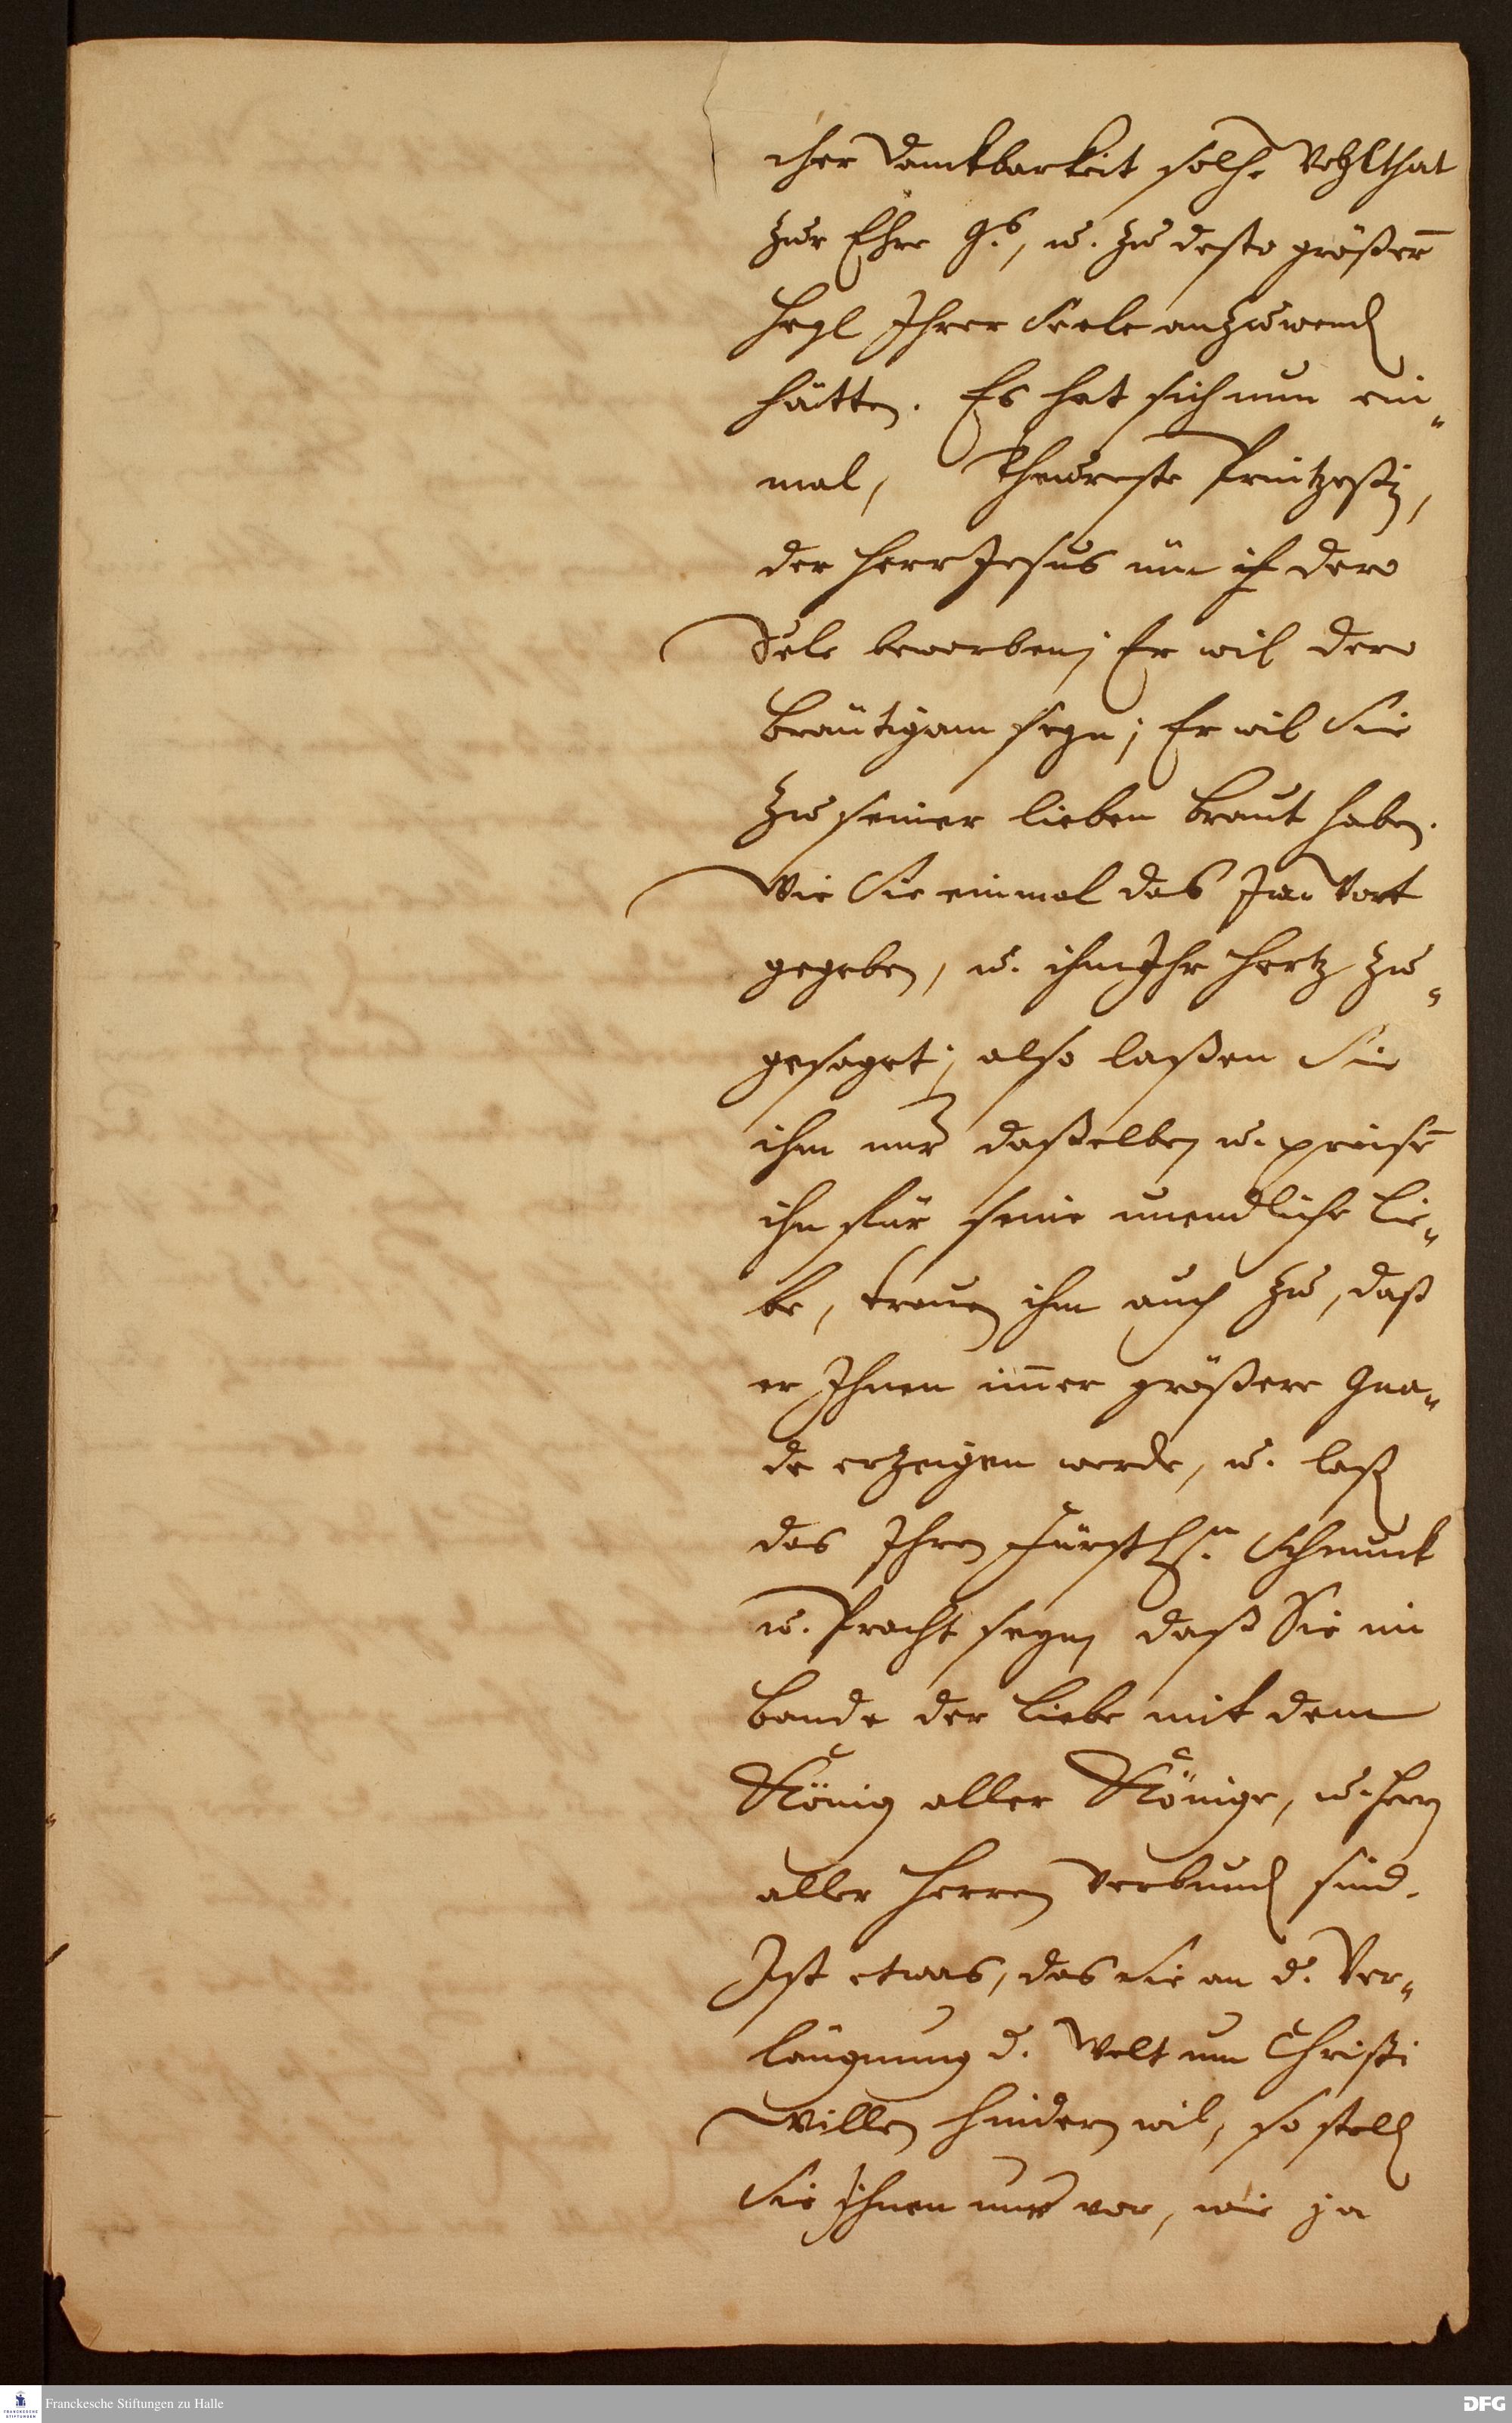 cher Danckbarkeit solche Wohlthat
zur Ehre G.s, u. zu desto größerē
Heyl Ihrer Seele anzuwenden
hätten. Es hat sich nun ein„
mal, Theureste Printzeßin,
der Herr Jesus üm dero
Sele beworben; Er wil dero
Bräutigam seyn; Er wil Sie
zu seiner lieben Braut haben.
Wie Sie einmal das Ja-Wort
gegeben, u. ihm Ihr Hertz zu„
gesaget; also laßen Sie
ihm nur daßelben u. preisē
ihn für seine unendliche Lie„
be, trauen ihm auch zu, daß
er Ihnen im̄er größere Gna„
de erzeigen werde, u. laßen
das Ihren Fürstl.n Schmuck
u. Pracht seyn, daß Sie im
Bande der Liebe mit dem
König aller Könige, u. Herrn
aller Herren verbunden sind.
Ist etwas, das Sie an d. Ver„
läugnung d. Welt um Christi
Willen hindern wil, so stellen
Sie Ihnen nur vor, wie ja
Franckesche Stiftungen zu Halle
DFG